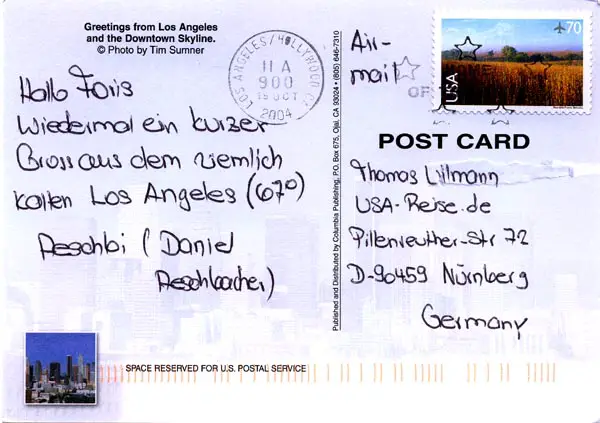 Greetings from Los Angeles
and the Downtown Skyline.
© Photo by Tim Sumner
Hallo Foris
Wiedermal ein kurzer
Gross aus dem ziemlich
kalten Los Angeles (67°)
Aeschbi (Daniel
Aeschbacher)
LOS ANGELES/HOLLYWOOD CA
11 A
900
15 OCT
2004
Published and Distributed by Columbia Publishing, P.O. Box 675, Ojai, CA 93024 • (805) 646-7310
Air-
mail
70
USA
POST CARD
Thomas Lilmann
USA-Reise.de
Pillenreuther-Str 72
D-90459 Nürnberg
Germany
SPACE RESERVED FOR U.S. POSTAL SERVICE